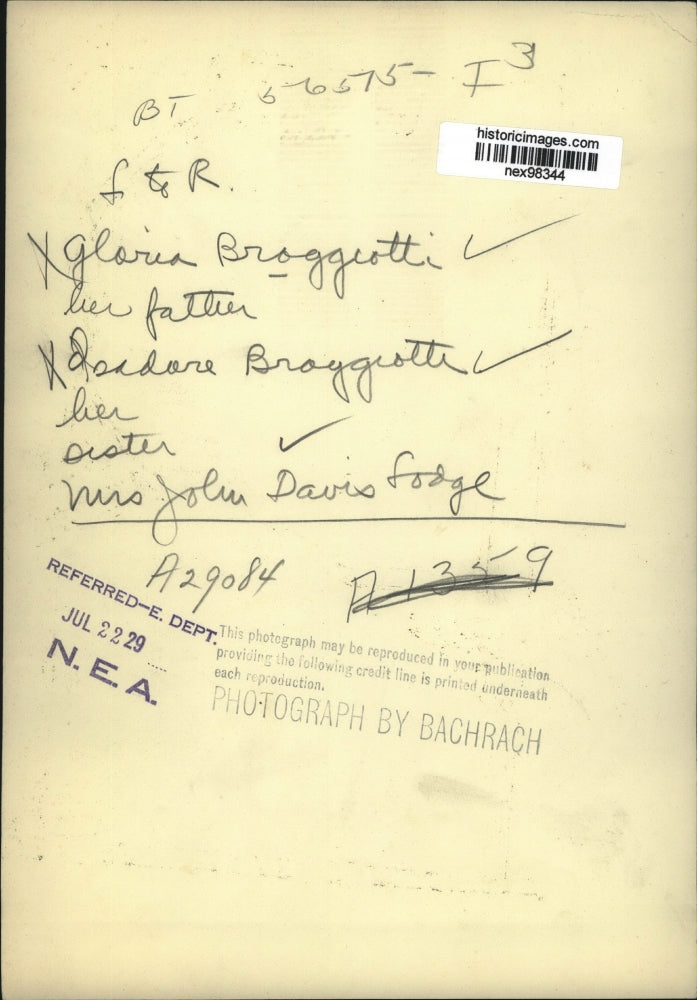 BT 56575- I3
historicimages.com
nex98344
L to R.
X Gloria Braggiotti ✓
her father
X Isadore Braggiotti ✓
her
sister ✓
Mrs John Davis Lodge
A29084 A1359
REFERRED-E. DEPT.
JUL 22 29
N. E. A.
This photograph may be reproduced in your publication
providing the following credit line is printed underneath
each reproduction.
PHOTOGRAPH BY BACHRACH